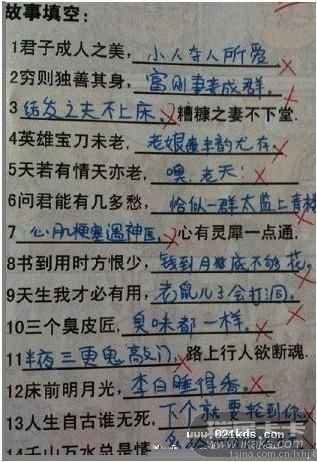 故事填空：
1君子成人之美，小人夺人所爱
2穷则独善其身，富则妻妾成群。
3结发之夫不上床，糟糠之妻不下堂.
4英雄宝刀未老，老娘风韵尤存。
5天若有情天亦老，噢，老天！
6问君能有几多愁，恰似一群太监上青楼
7心肌梗塞遇神医，心有灵犀一点通，
8书到用时方恨少，钱到月底不够花。
9天生我才必有用，老鼠儿子会打洞。
10三个臭皮匠，臭味都一样。
11半夜三更鬼敲门，路上行人欲断魂.
12床前明月光，李白睡得香。
13人生自古谁无死，下个就要轮到你
14千山万水总是情
www.021kds.com